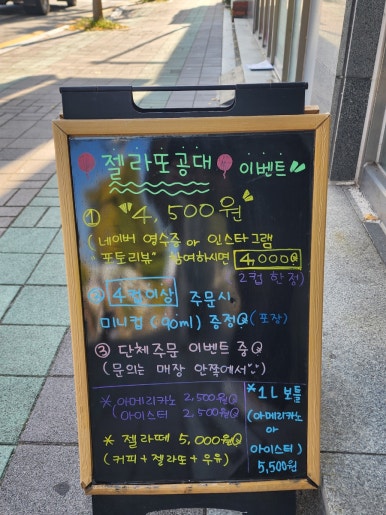 젤라또공대 이벤트
① "4,500원"
(네이버 영수증 or 인스타그램
"포토리뷰" 참여하시면 4,000원
2컵 한정)
② 4컵이상 주문시
미니컵 (90ml) 증정 (포장)
③ 단체주문 이벤트 중
(문의는 매장 안쪽에서)
※ 아메리카노 2,500원
(아이스티 2,500원
※ 젤라떼 5,000원
(커피+젤라또+우유)
※ 1L 보틀
(아메리카노
아
아이스티)
5,500원